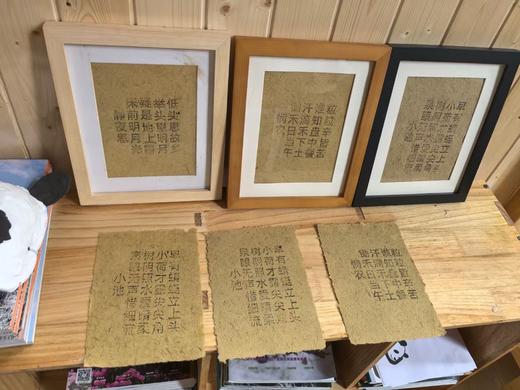 静夜思
床前明月光
疑是地上霜
举头望明月
低头思故乡
悯农
锄禾日当午
汗滴禾下土
谁知盘中餐
粒粒皆辛苦
小池
泉眼无声惜细流
树阴照水爱晴柔
小荷才露尖尖角
早有蜻蜓立上头
小池
泉眼无声惜细流
树阴照水爱晴柔
小荷才露尖尖角
早有蜻蜓立上头
小池
泉眼无声惜细流
树阴照水爱晴柔
小荷才露尖尖角
早有蜻蜓立上头
悯农
锄禾日当午
汗滴禾下土
谁知盘中餐
粒粒皆辛苦